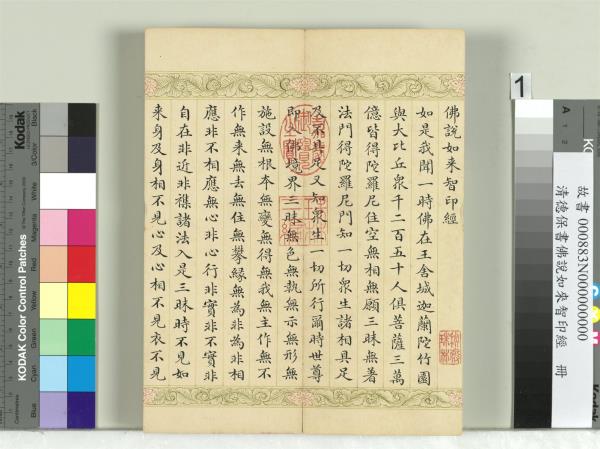 佛說如來智印經
如是我聞一時佛在王舍城迦蘭陀竹園
與大比丘衆千二百五十人俱菩薩三萬
億皆得陀羅尼住空無相無願三昧無著
法門得陀羅尼門知一切衆生諸相具足
及不具足又知衆生一切所行爾時世尊
即入佛境界三昧無色無執無示無形無
施設無根本無變無得無我無主作無不
作無來無去無住無攀緣無為非為非相
應非不相應無心非心行非實非不實非
自在非近非襍諸法入是三昧時不見如
來身及身相不見心及心相不見衣不見
1
故書 000883N000000000
清德保書佛說如來智印經 冊
KODAK Color Control Patches
Kodak
Blue
Cyan
Green
Yellow
Red
Magenta
White
3/Color
Black
A 1 2